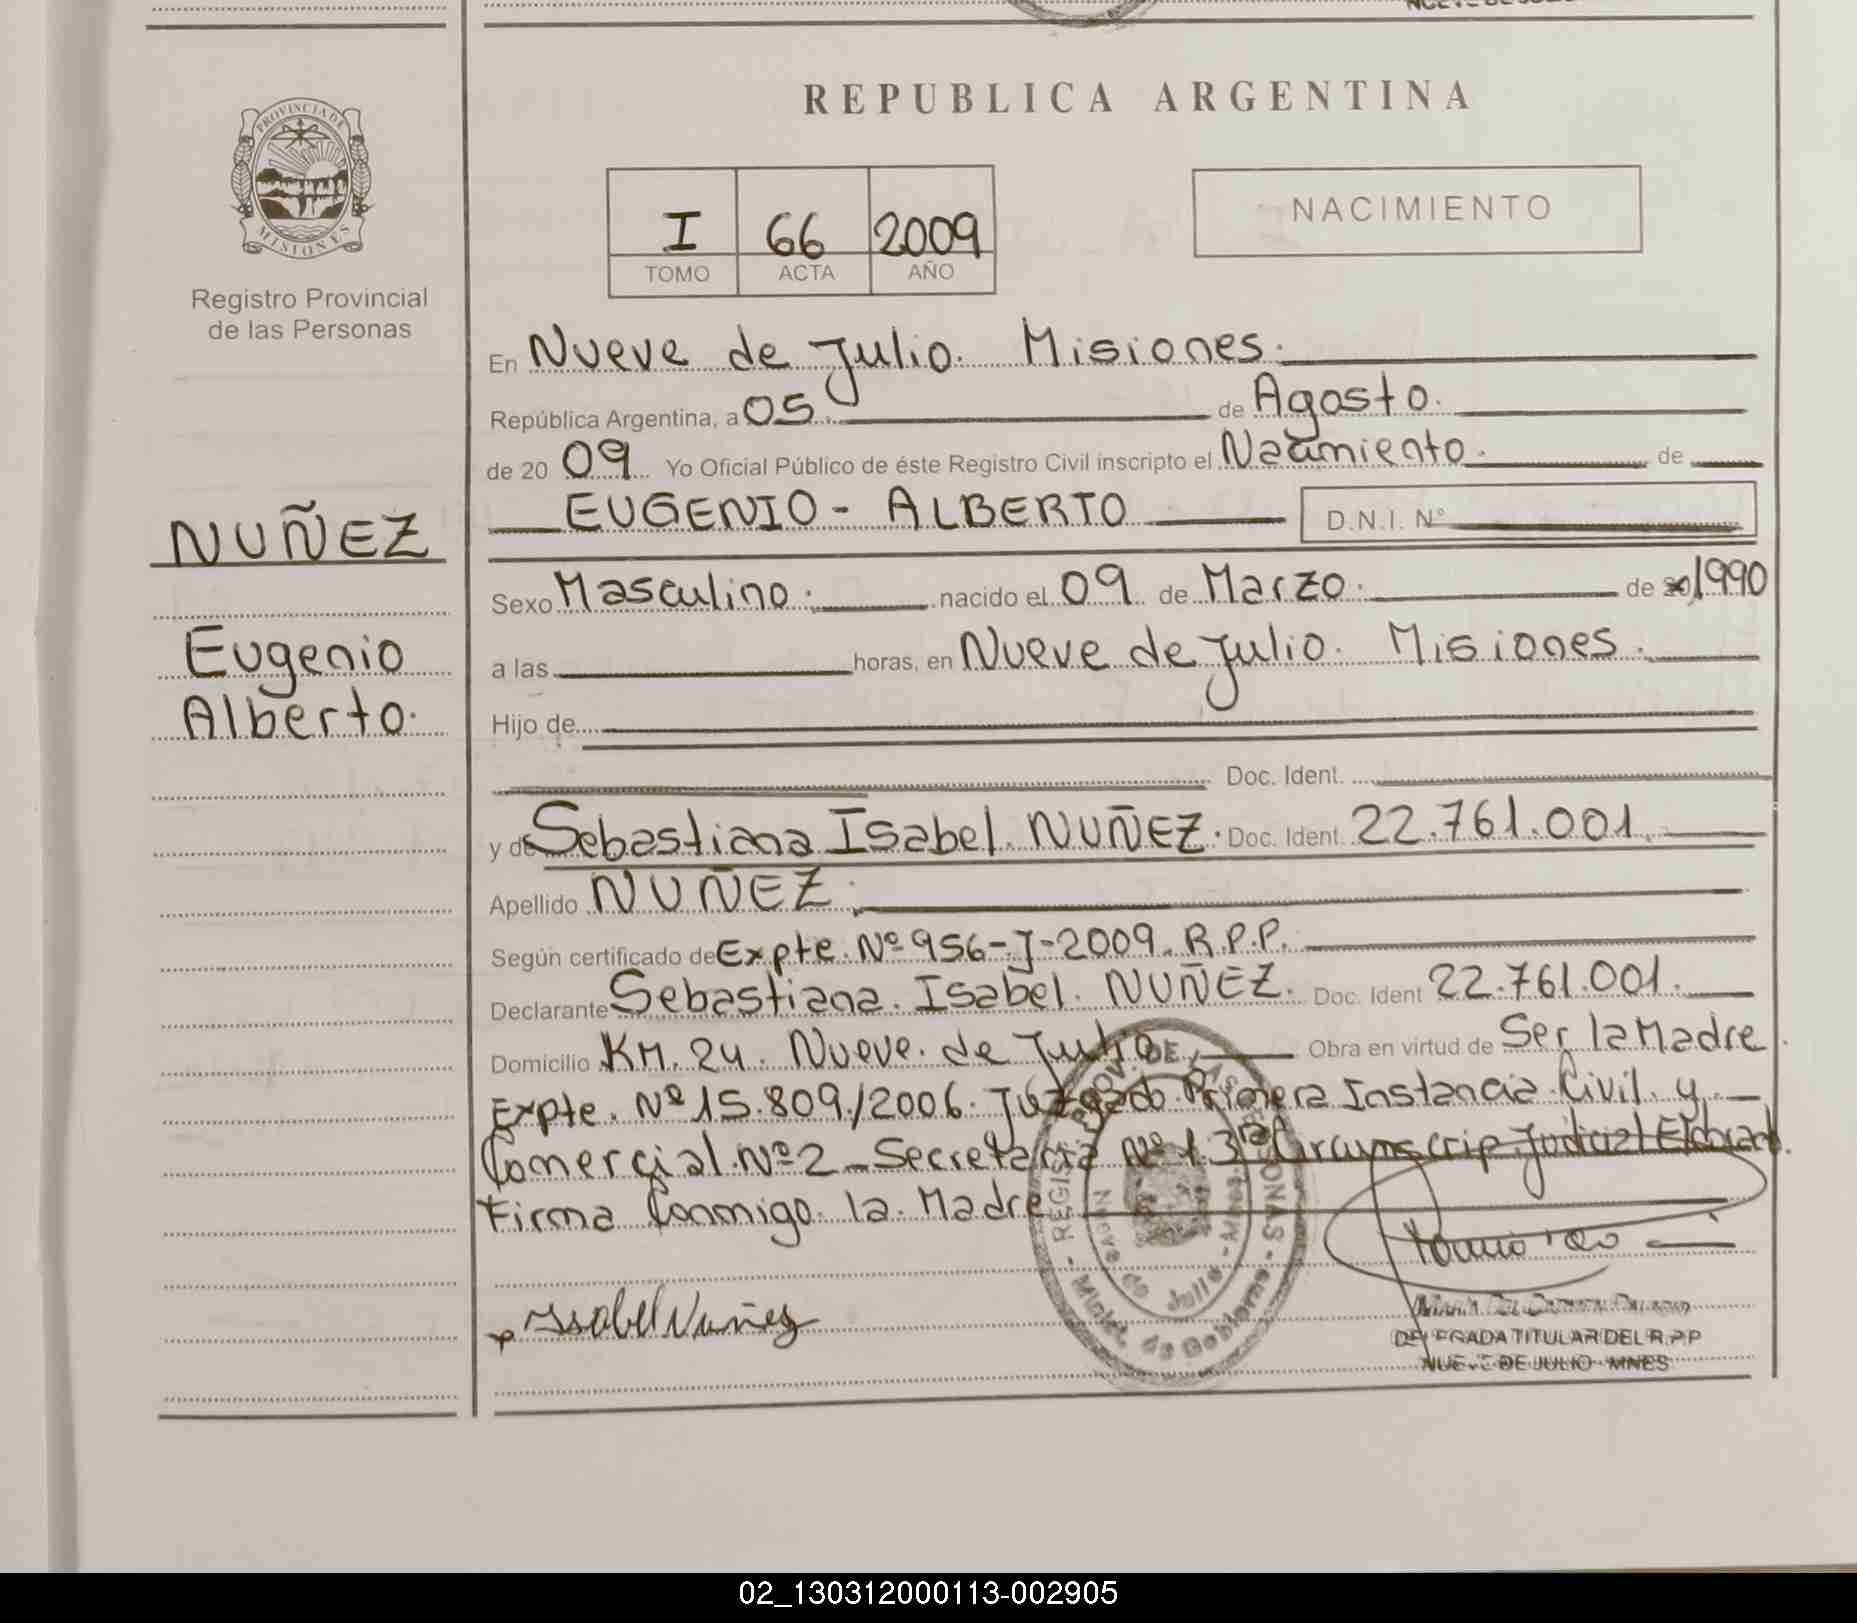 REPUBLICA ARGENTINA
PROVINCIA DE
MISIONES
Registro Provincial
de las Personas
I 66 2009
TOMO ACTA AÑO
NACIMIENTO
En Nueve de Julio. Misiones.
República Argentina, a 05 de Agosto.
de 20 09 Yo Oficial Público de éste Registro Civil inscripto el Nacimiento. de
EUGENIO - ALBERTO D.N.I. Nº
NUÑEZ
Eugenio
Alberto.
Sexo Masculino. nacido el 09 de Marzo. de 20 1990
a las horas, en Nueve de Julio. Misiones.
Hijo de
Doc. Ident.
y de Sebastiana Isabel NUÑEZ. Doc. Ident. 22.761.001.
Apellido NUÑEZ.
Según certificado de Expte. Nº 956-J-2009. R.P.P.
Declarante Sebastiana. Isabel. NUÑEZ. Doc. Ident 22.761.001.
Domicilio KM. 24. Nueve. de Julio Obra en virtud de Ser la Madre.
Expte. Nº 15.809/2006. Juzgado Primera Instancia Civil y
Comercial. Nº 2 - Secretaria Nº 1. 3ra Circunscrip. Judicial Eldorado.
Firma Conmigo. la. Madre
Isabel Nuñez
de Julio
Minist. de Gobierno
DELEGADA TITULAR DEL R.P.P
NUEVE DE JULIO - MNES
02_130312000113-002905